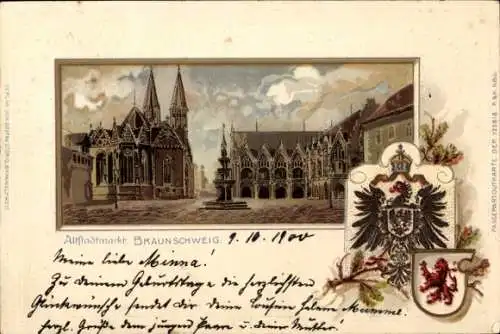 Altstadtmarkt. BRAUNSCHWEIG. 9.10.1900
Meine liebe Menna!
Zu deinem Geburtstage die herzlichsten
Glückwünsche sendet dir deine Cousine Helene Mumme.
Herzl. Grüße dem jungen Paare u. deine Mutter.
PASSEPARTOUTKARTE